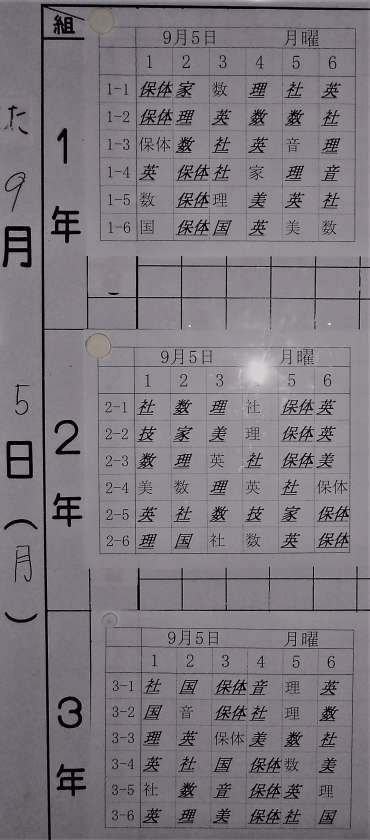 組
た
9月5日(月)
1年
9月5日 月曜
1 2 3 4 5 6
1-1 保体 家 数 理 社 英
1-2 保体 理 英 数 数 社
1-3 保体 数 社 英 音 理
1-4 英 保体 社 家 理 音
1-5 数 保体 理 美 英 社
1-6 国 保体 国 英 美 数
2年
9月5日 月曜
1 2 3 4 5 6
2-1 社 数 理 社 保体 英
2-2 技 家 美 理 保体 英
2-3 数 理 英 社 保体 美
2-4 美 数 理 英 社 保体
2-5 英 社 数 技 家 保体
2-6 理 国 社 数 英 保体
3年
9月5日 月曜
1 2 3 4 5 6
3-1 社 国 保体 音 理 英
3-2 国 音 保体 社 理 数
3-3 理 英 保体 美 数 社
3-4 英 社 国 保体 数 美
3-5 社 数 音 保体 英 理
3-6 英 理 美 保体 社 国